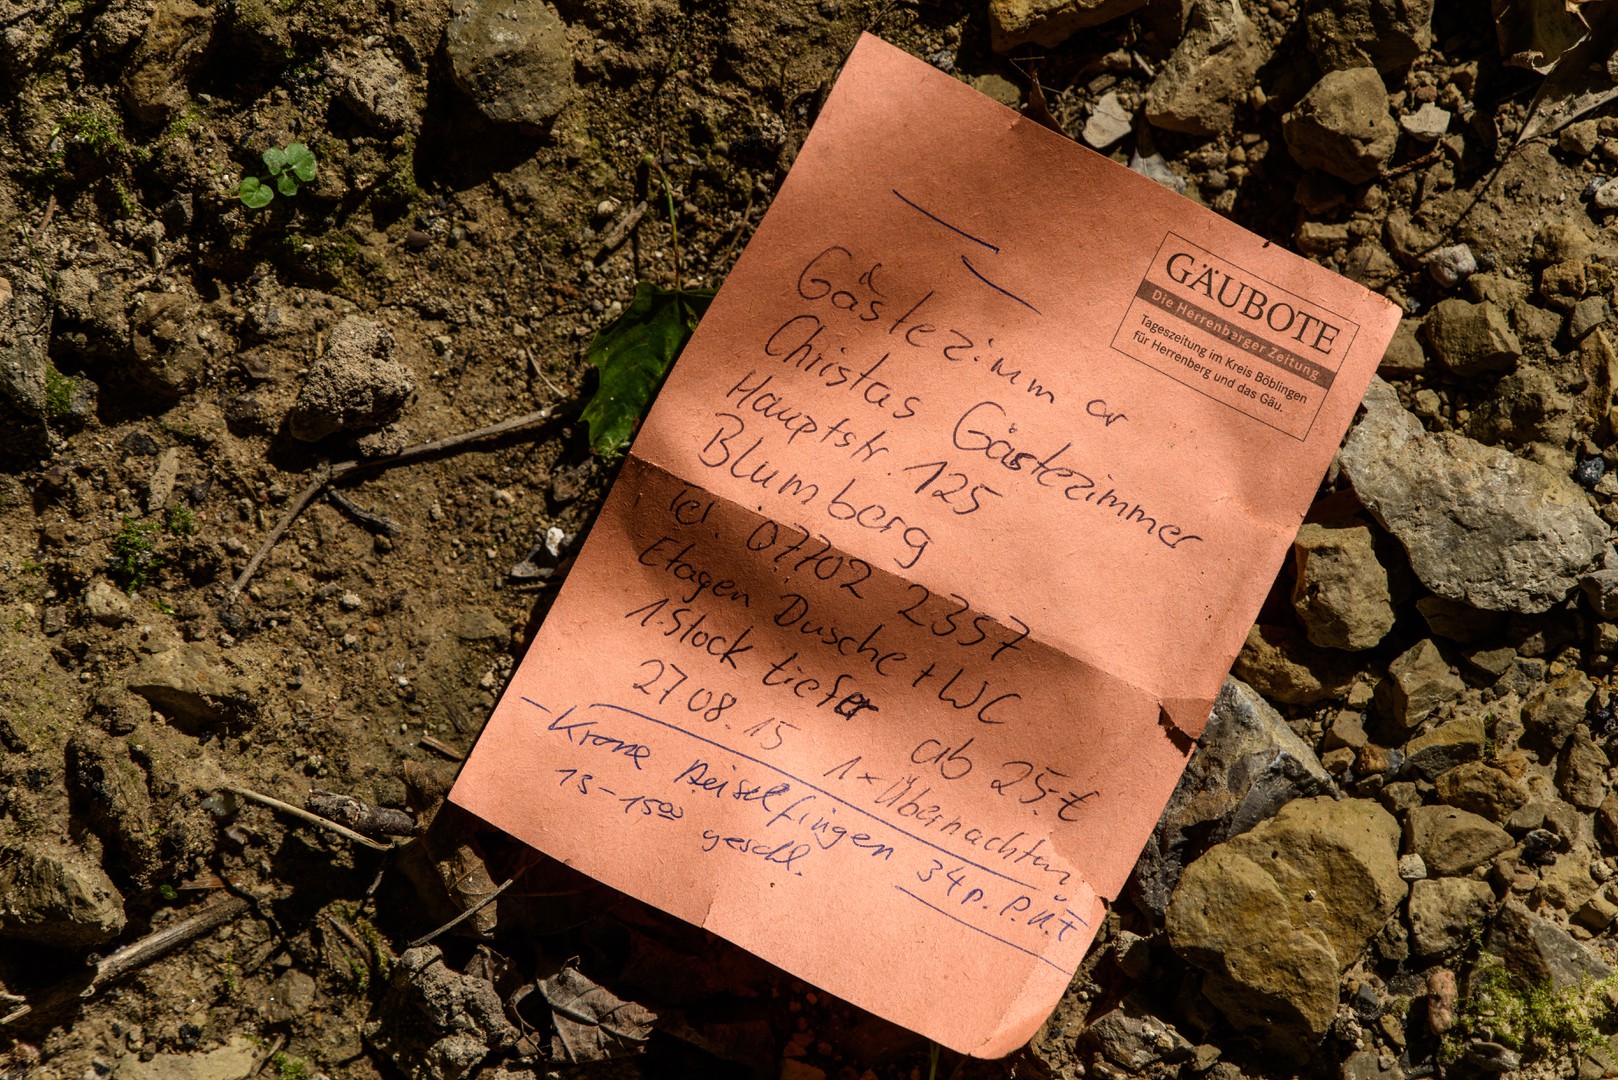 GÄUBOTE
Die Herrenberger Zeitung
Tageszeitung im Kreis Böblingen
für Herrenberg und das Gäu.
Gästezimm er
Christas Gästezimmer
Hauptstr. 125
Blumberg
Tel. 07702 2357
Etagen Dusche + WC
1. Stock tiefer ab 25.€
27 08. 15 1 x Übernachtun
- Krone 34 p. P. Ü. F
13 - 15⁰⁰ geschl.